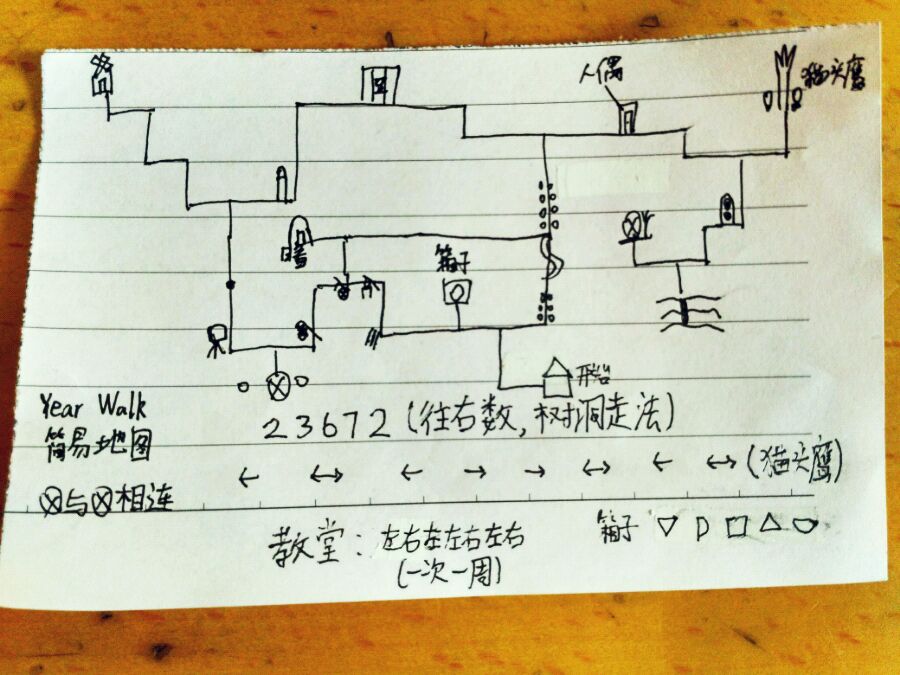 人偶
猫头鹰
箱子
开始
Year Walk
简易地图
23672(往右数,树洞走法)
← ↔ ← → → ↔ ← ↔ (猫头鹰)
⊗与⊗相连
箱子 ▽ D □ △ ⌓
教堂:左右左左右左右
(一次一周)